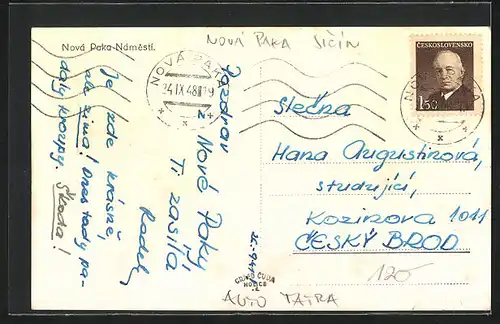 NOVÁ PAKA JIČÍN
Nová Paka-Náměstí.
Je zde krásně,
ale zima! Dnes tady pa-
daly kroupy. Škoda!
Pozdrav
z Nové Paky
Ti zasílá
Radek
NOVÁ PAKA
24 IX 48 19
ČESKOSLOVENSKO
1.50
NOVÁ PAKA
Slečna
Hana Augustinová,
studující,
Kozinova 1011
ČESKÝ BROD
120
GRAFO ČUDA
HOLICE
AUTO TATRA